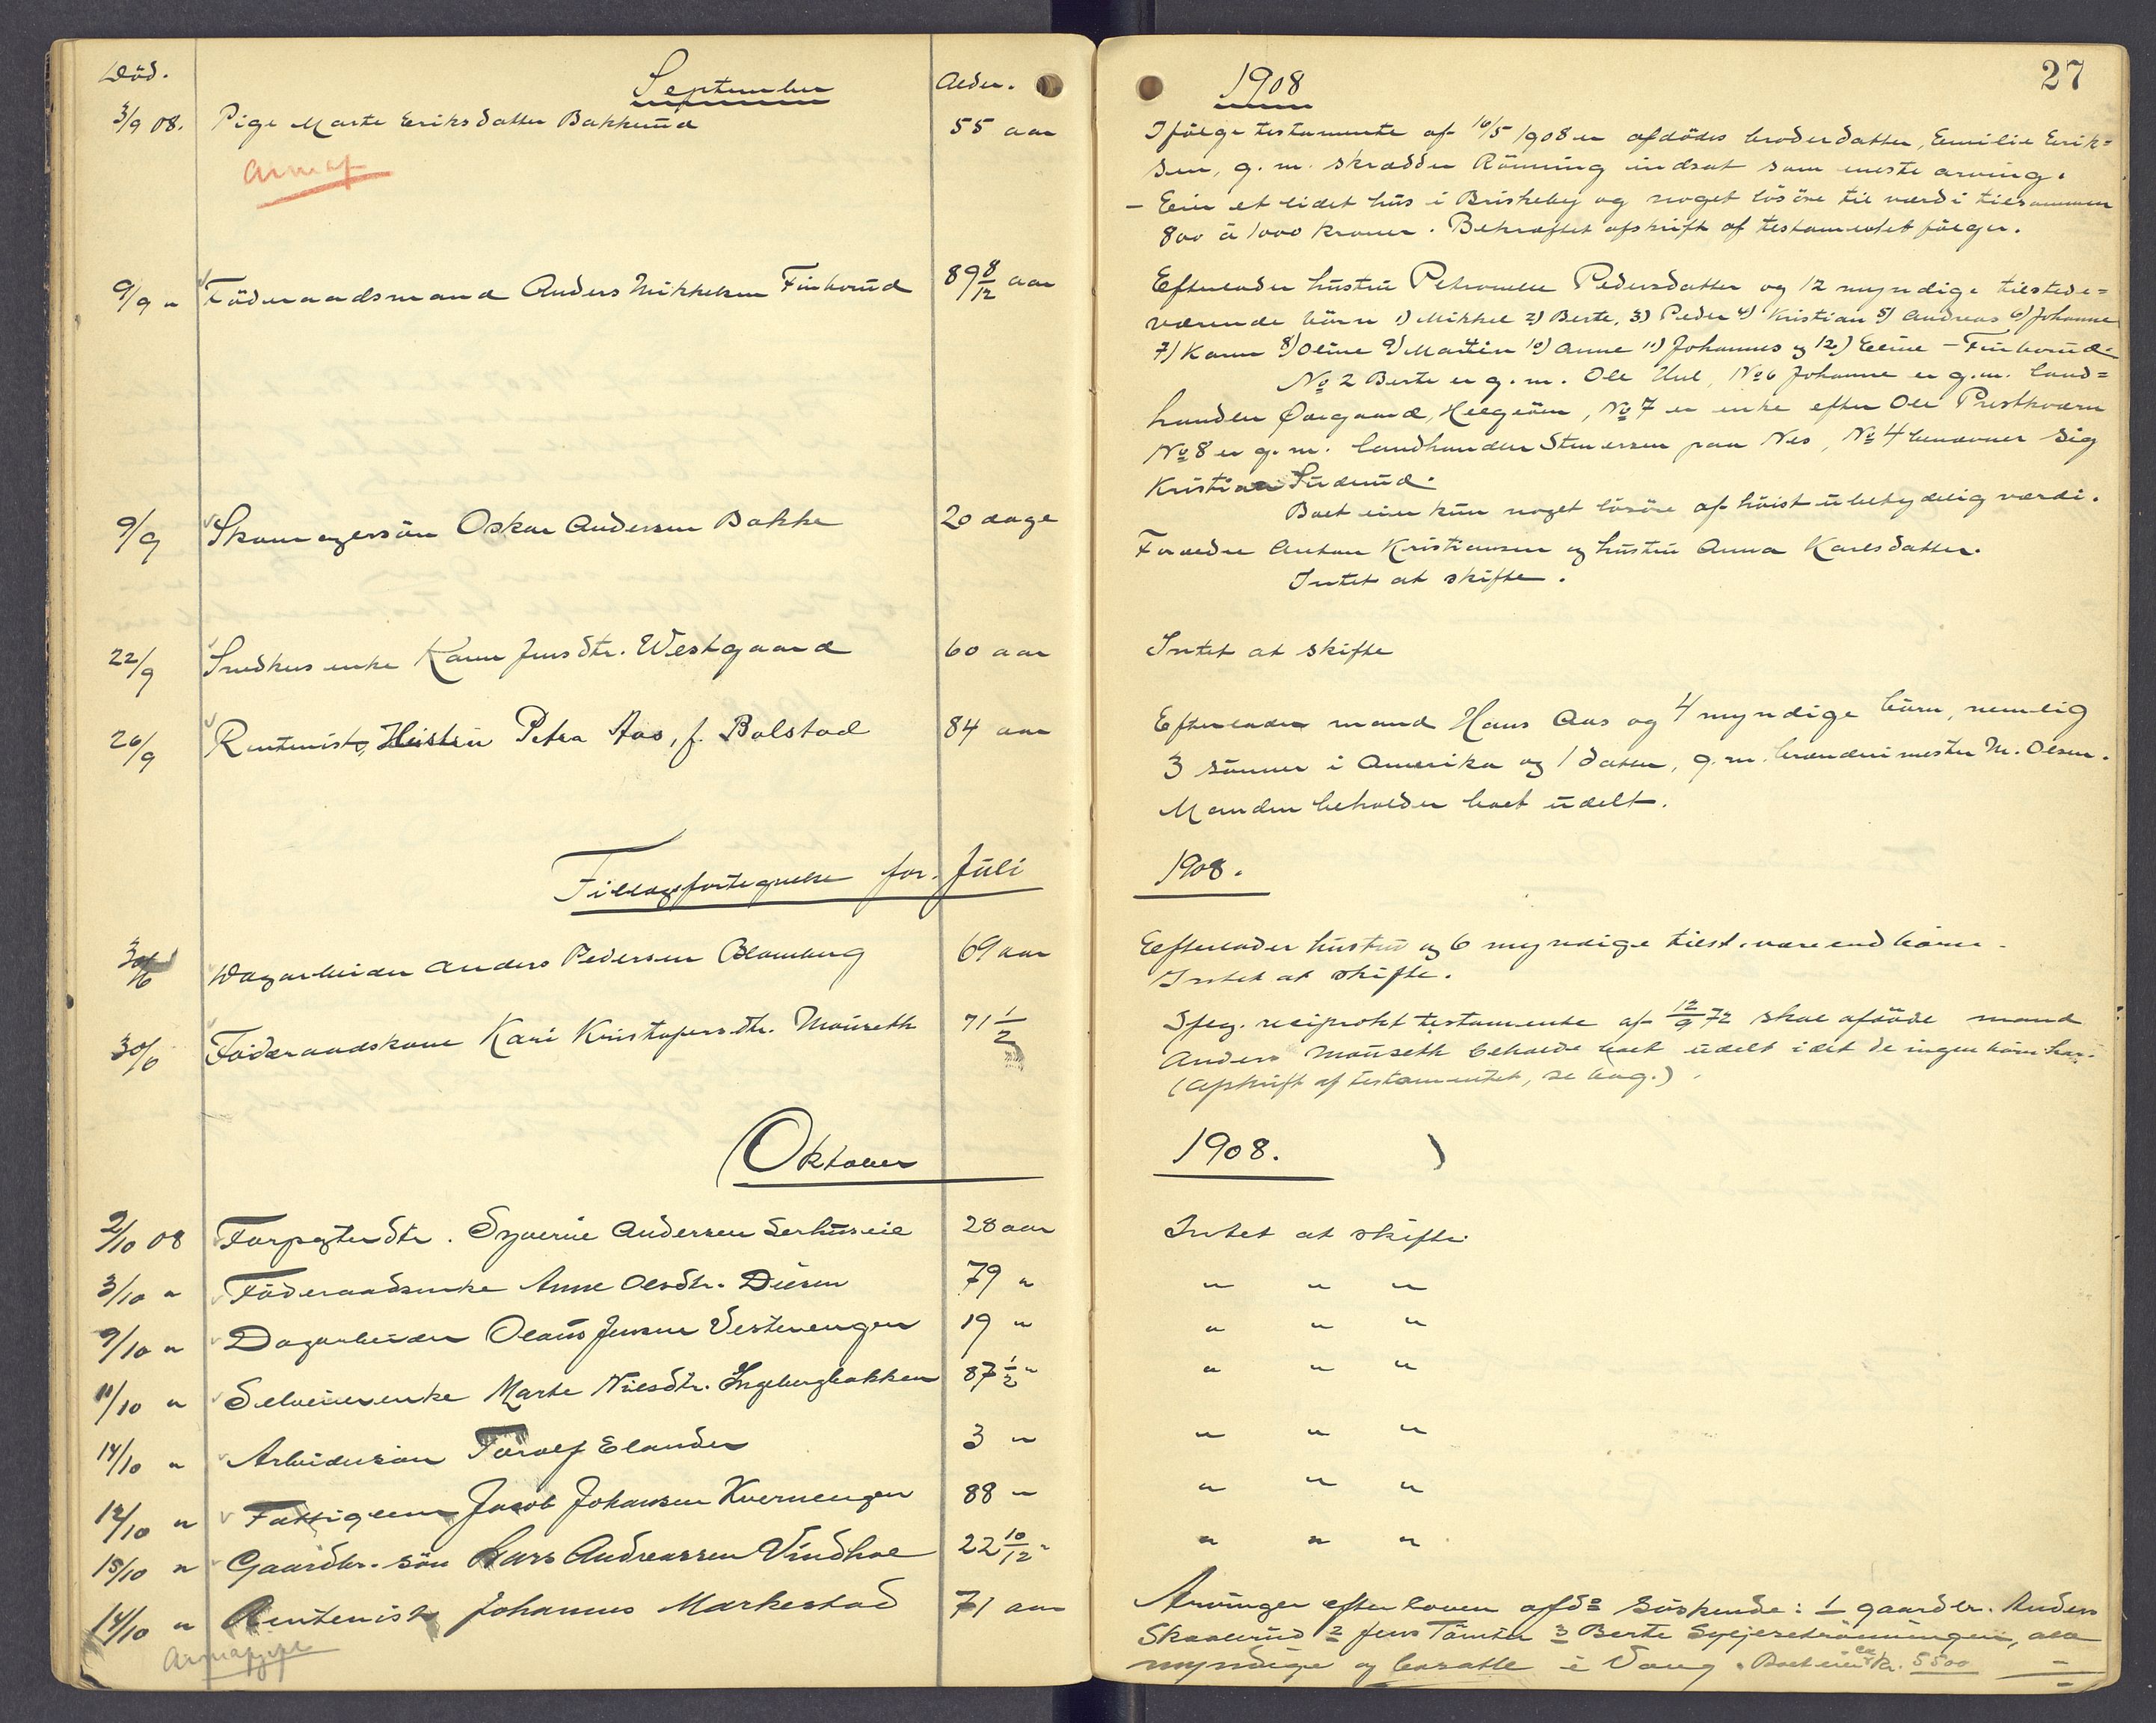 Död.
September
Alder.
3/9 08. Pige Marte Eriksdatter Bakkerud 55 aar
9/9 " Föderaadsmand Anders Mikkelsen Finborud 89 8/12 aar
9/9 Skomagersön Oskar Andersen Bakke 20 dage
22/9 Snedkerenke Karen Jensdtr. Westgaard 60 aar
26/9 Rentenist, Hustru Petra Aas, f. Bolstad 84 aar
Tillægsfortegnelse for Juli
30/6 Dagarbeider Anders Pedersen Blomberg 69 aar
30/6 Föderaadskone Kari Kristofersdtr. Mauseth 71 1/2
Oktober
2/10 08 Forpagterdtr. Andersen 28 aar
3/10 " Föderaadsenke Anne Olsdtr. Diesen 79 "
9/10 " Dagarbeider Olaus Jensen Vesterengen 19 "
11/10 " Selveierenke Marte Nilsdtr. Ingeborgbakken 87 1/2 "
14/10 " Arbeidersön Toralf Elander 3 "
12/10 " Fattiglem Jacob Johansen Kvernengen 88 "
15/10 " Gaardbr. sön Lars Andreassen Vindhol 22 10/12 "
14/10 " Rentenist Johannes Markestad 71 aar
27
1908
Ifölge testamente af 16/5 1908 er afdödes broderdatter, Emilie Erik=
sen, g. m. skrædder Rönning indsat som eneste arving.
- Eier et lidet hus i Briskeby og noget lösöre til værdi tilsammen
800 à 1000 kroner. Bekræftet afskrift af testamentet fölger.
Efterlader hustru Petronelle Pedersdatter og 12 myndige tilstede=
værende börn 1) Mikkel 2) Berte, 3) Peder 4) Kristian 5) Andreas 6) Johanne
7) Karen 8) Oline 9) Martin 10) Anne 11) Johannes og 12) Eline - Finborud.
No 2 Berte er g. m. Ole Hul, No 6 Johanne er g. m. land=
handler Övergaard, Helgöen, No 7 er enke efter Ole Prestkværn
No 8 er g. m. landhandler Stenersen paa Nes, No 4 benævner sig
Kristian Suderud.
Boet eier kun noget lösöre af höist ubetydelig værdi.
Forældre Anton Kristiansen og hustru Anna Karlsdatter.
Intet at skifte.
Intet at skifte
Efterlader mand Hans Aas og 4 myndige börn, nemlig
3 sönner i Amerika og 1 datter, g. m. brænderimester M. Olsen.
Manden beholder boet udelt.
1908.
Efterlader hustru og 6 myndige tilst. værend börn.
Intet at skifte.
Iflg. reciprokt testamente af 12/9 72 skal afdöde mand
Anders Mauseth beholde boet udelt idet de ingen börn har.
(Afskrift af testamentet, se bag.)
1908.
Intet at skifte
" " "
" " "
" " "
" " "
" " "
" " "
Arvinger efter loven afds söskende: 1 gaardbr. Anders
Skaalerud 2 Jens Tömte 3 Berte, alle
myndige og bosatte i Vang. Boet eier ca kr. 5500